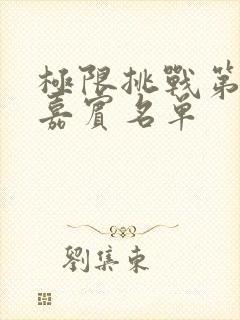 極限挑戰第
嘉賓名單
劉集東